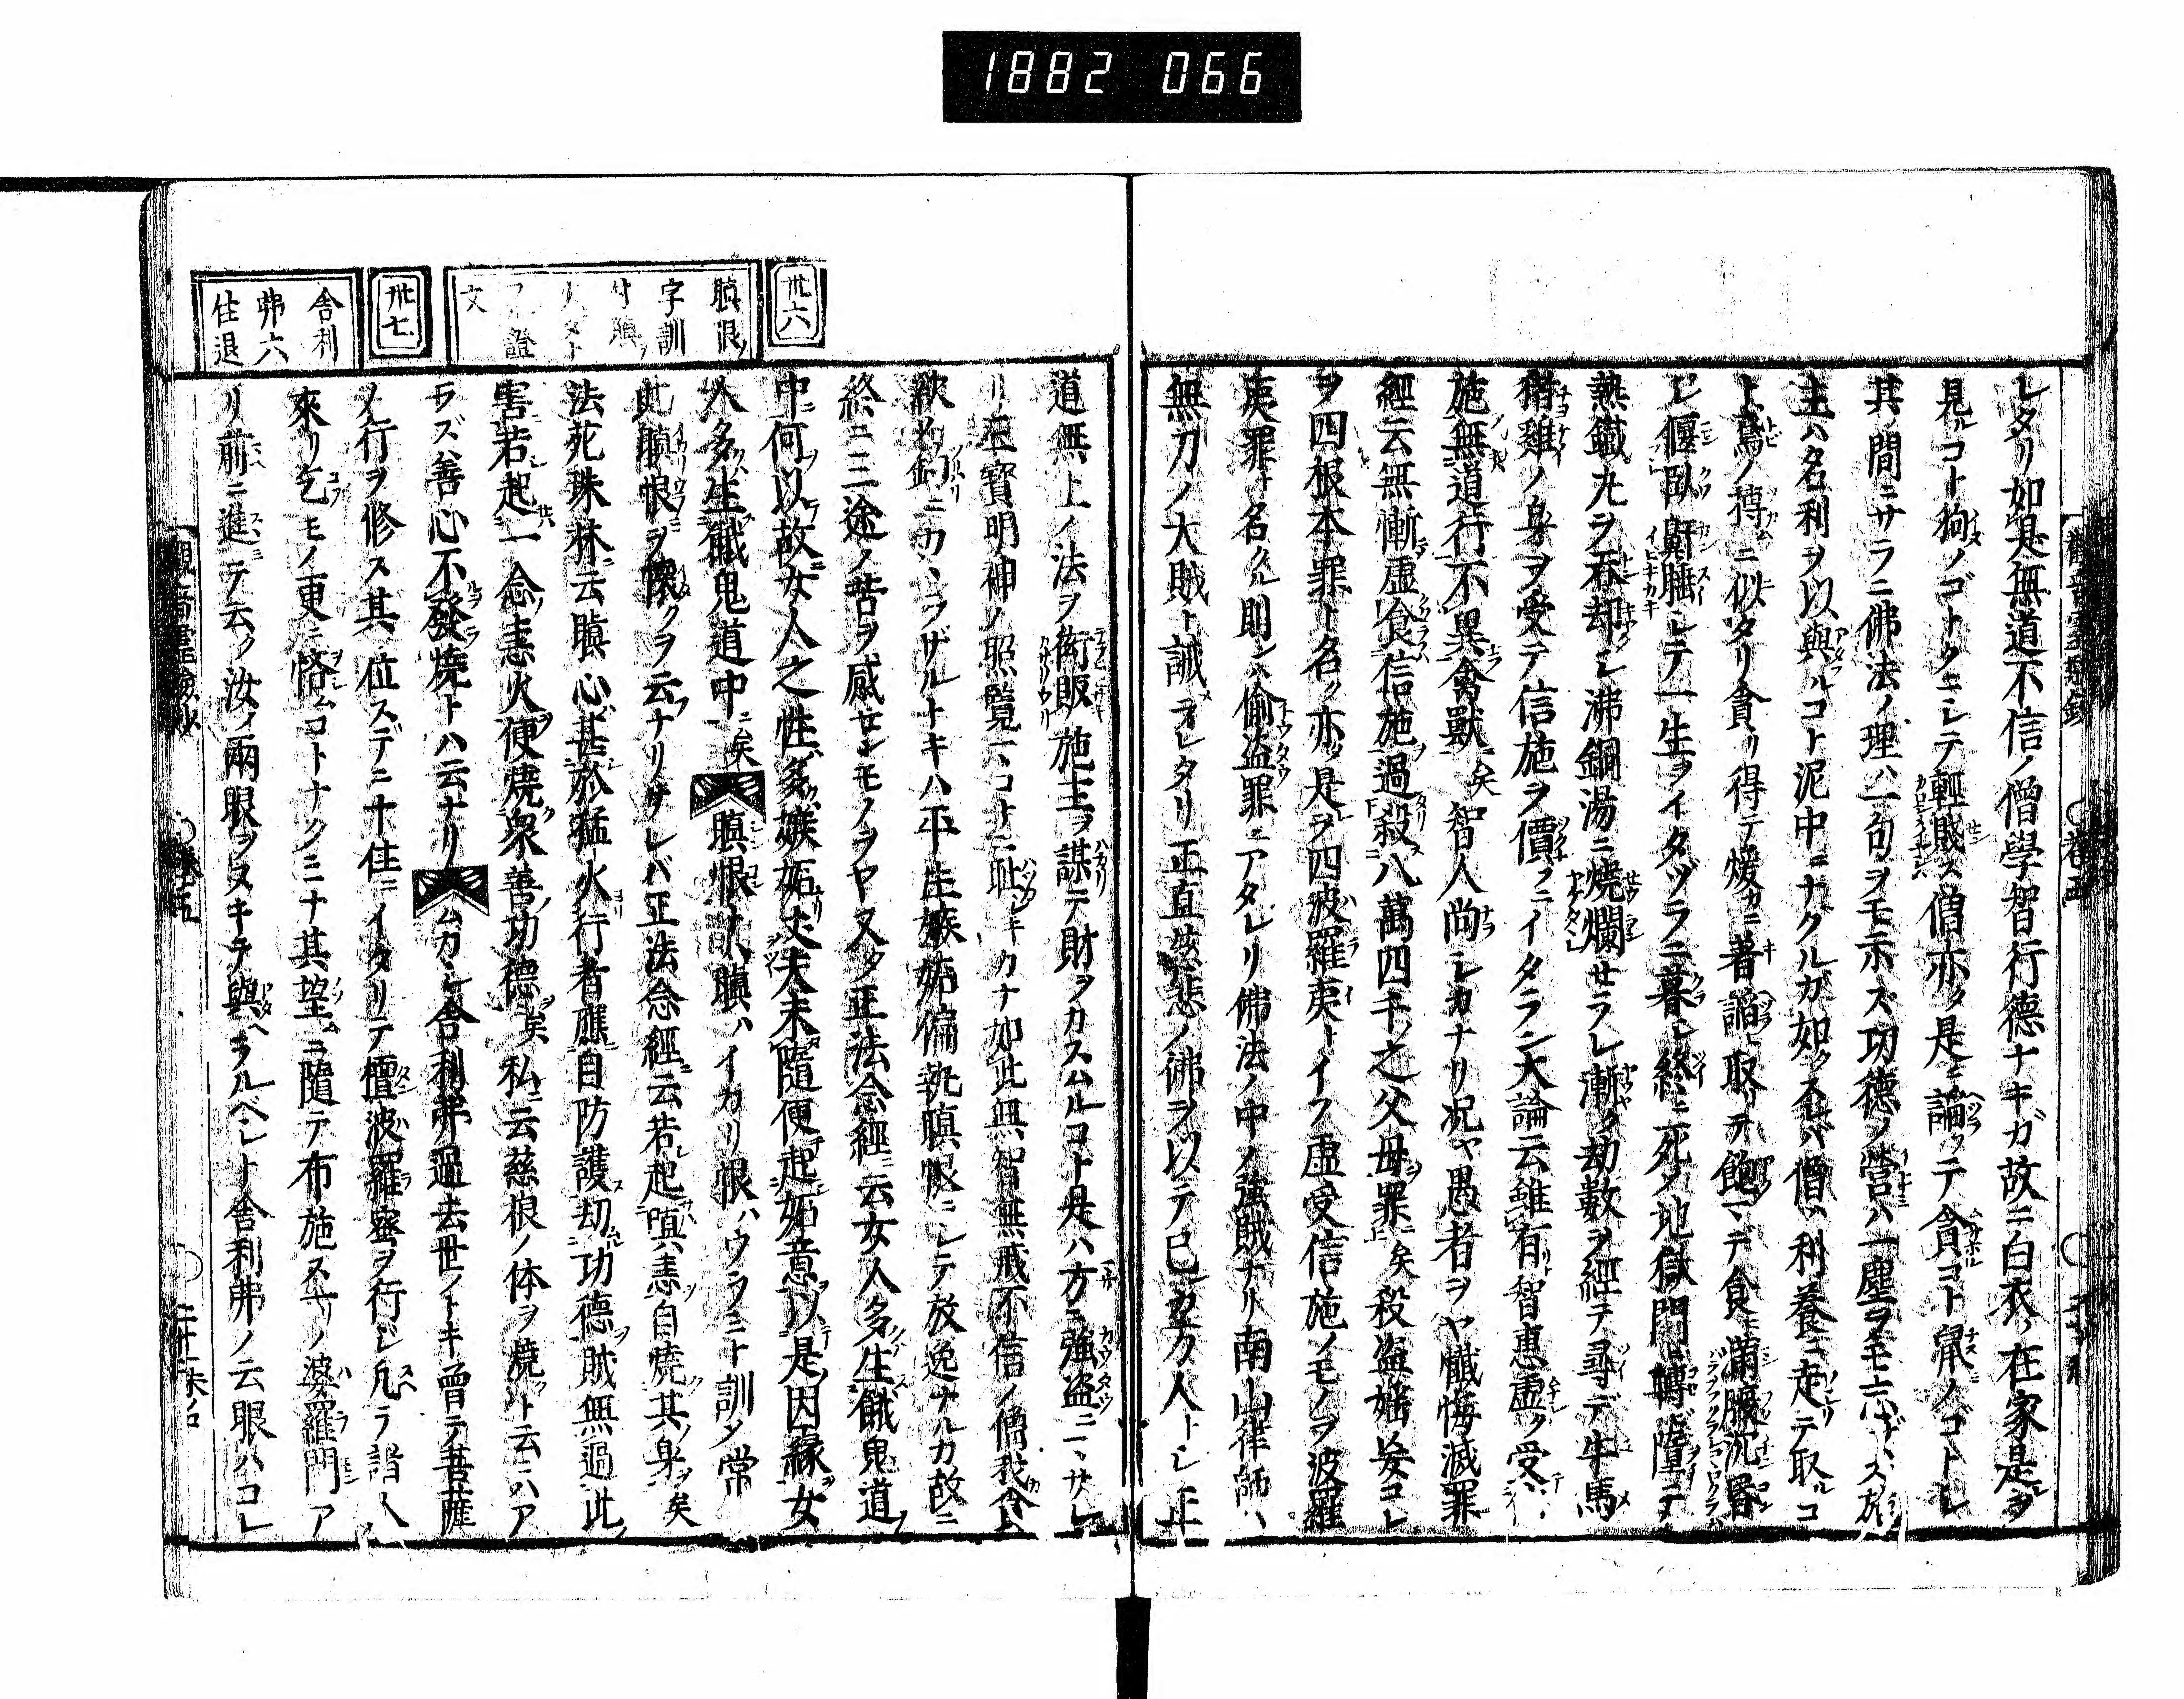 1882 066
レタリ如是無道不信ノ僧學智行德ナキガ故ニ白衣在家是ヲ
見ルコト狗ノゴトクニシテ輕賤ス僧亦タ是ニ諂テ貪コト鼠ノゴトシ
其ノ間ニサラニ佛法ノ理ハ一句ヲモ示ズ功德ノ營ハ一塵ヲモ忘ズ施
主ハ名利ヲ以與ルコト泥中ニナクルガ如クスレバ僧ハ利養ニ走テ取ルコ
ト鳶ノ摶ニ似タリ貪リ得テ煖カニ著諂ヒ取リテ飽マデ食ヒ滿腹沉昏
シ偃臥鼾睡シテ一生ヲイタヅラニ暮シ終ニ死メ地獄門ニ轉墮シテ
熱鐵丸ヲ吞却シ沸銅湯ニ燒爛セラレ漸ク劫數ヲ經テ尋デ牛馬
猪雞ノ身ヲ受テ信施ヲ價フニイタラン大論云雖有智惠虛ク受
施無道行不異禽獸矣智人尚シカナリ况ヤ愚者ヲヤ懺悔滅罪
經云無慚虛食信施過殺八萬四千之父母罪矣殺盜婬妄コレ
ヲ四根本罪ト名ク亦タ是ヲ四波羅夷トイフ虛受信施ノモノヲ波羅
夷罪ト名クル則ンハ偷盜罪ニアタレリ佛法ノ中ノ強賊ナリ南山律師ハ
無刀ノ大賊ト誡メラレタリ正直慈悲ノ佛ヲ以テ己カカタ人トシ正
道無上ノ法ヲ衒販施主ヲ謀テ財ヲカスムルコト是ハ方ニ強盜ニヽサレ
リ三寶明神ノ照覽マコトニ耻シキカナ如此無智無戒不信ノ僧我食
欲ノ鉤ニカヽラザルトキハ平生嫉妬偏執瞋恨ニシテ放逸ナルカ故ニ
終ニ三途ノ苦ヲ感センモノヲヤ又タ正法念經ニ云女人多生餓鬼道
中何以故女人之性多嫉妬丈夫未隨便起妬意以是因緣女
人多生餓鬼道中ニ矣瞋恨トハ瞋ハイカリ恨ハウラミト訓メ常
此瞋恨ヲ懷クヲ云ナリサレバ正法念經ニ云若起瞋恚自燒其身ヲ矣
法苑珠林云瞋心甚於猛火行者應自防護劫功德賊無過此
害若起一念恚火便燒衆善功德矣私云慈根ノ体ヲ燒クト云ニハア
ラズ善心不發燒トハ云ナリムカシ舍利弗過去世ノトキ曾テ菩薩
ノ行ヲ修ス其ノ位スデニ十住ニイタリテ檀波羅密ヲ行シ凡ラ諸人
來リ乞モノ更ニ悋ムコトナクミナ其望ニ隨テ布施ス一リノ婆羅門ア
リ前ニ進テ云ク汝ノ兩眼ヲヌキテ與ヘラルベシト舍利弗ノ云眼ハコレ
卅六
瞋恨ノ
字訓
付瞋ノ
證
文
卅七
舍利
弗六
住退